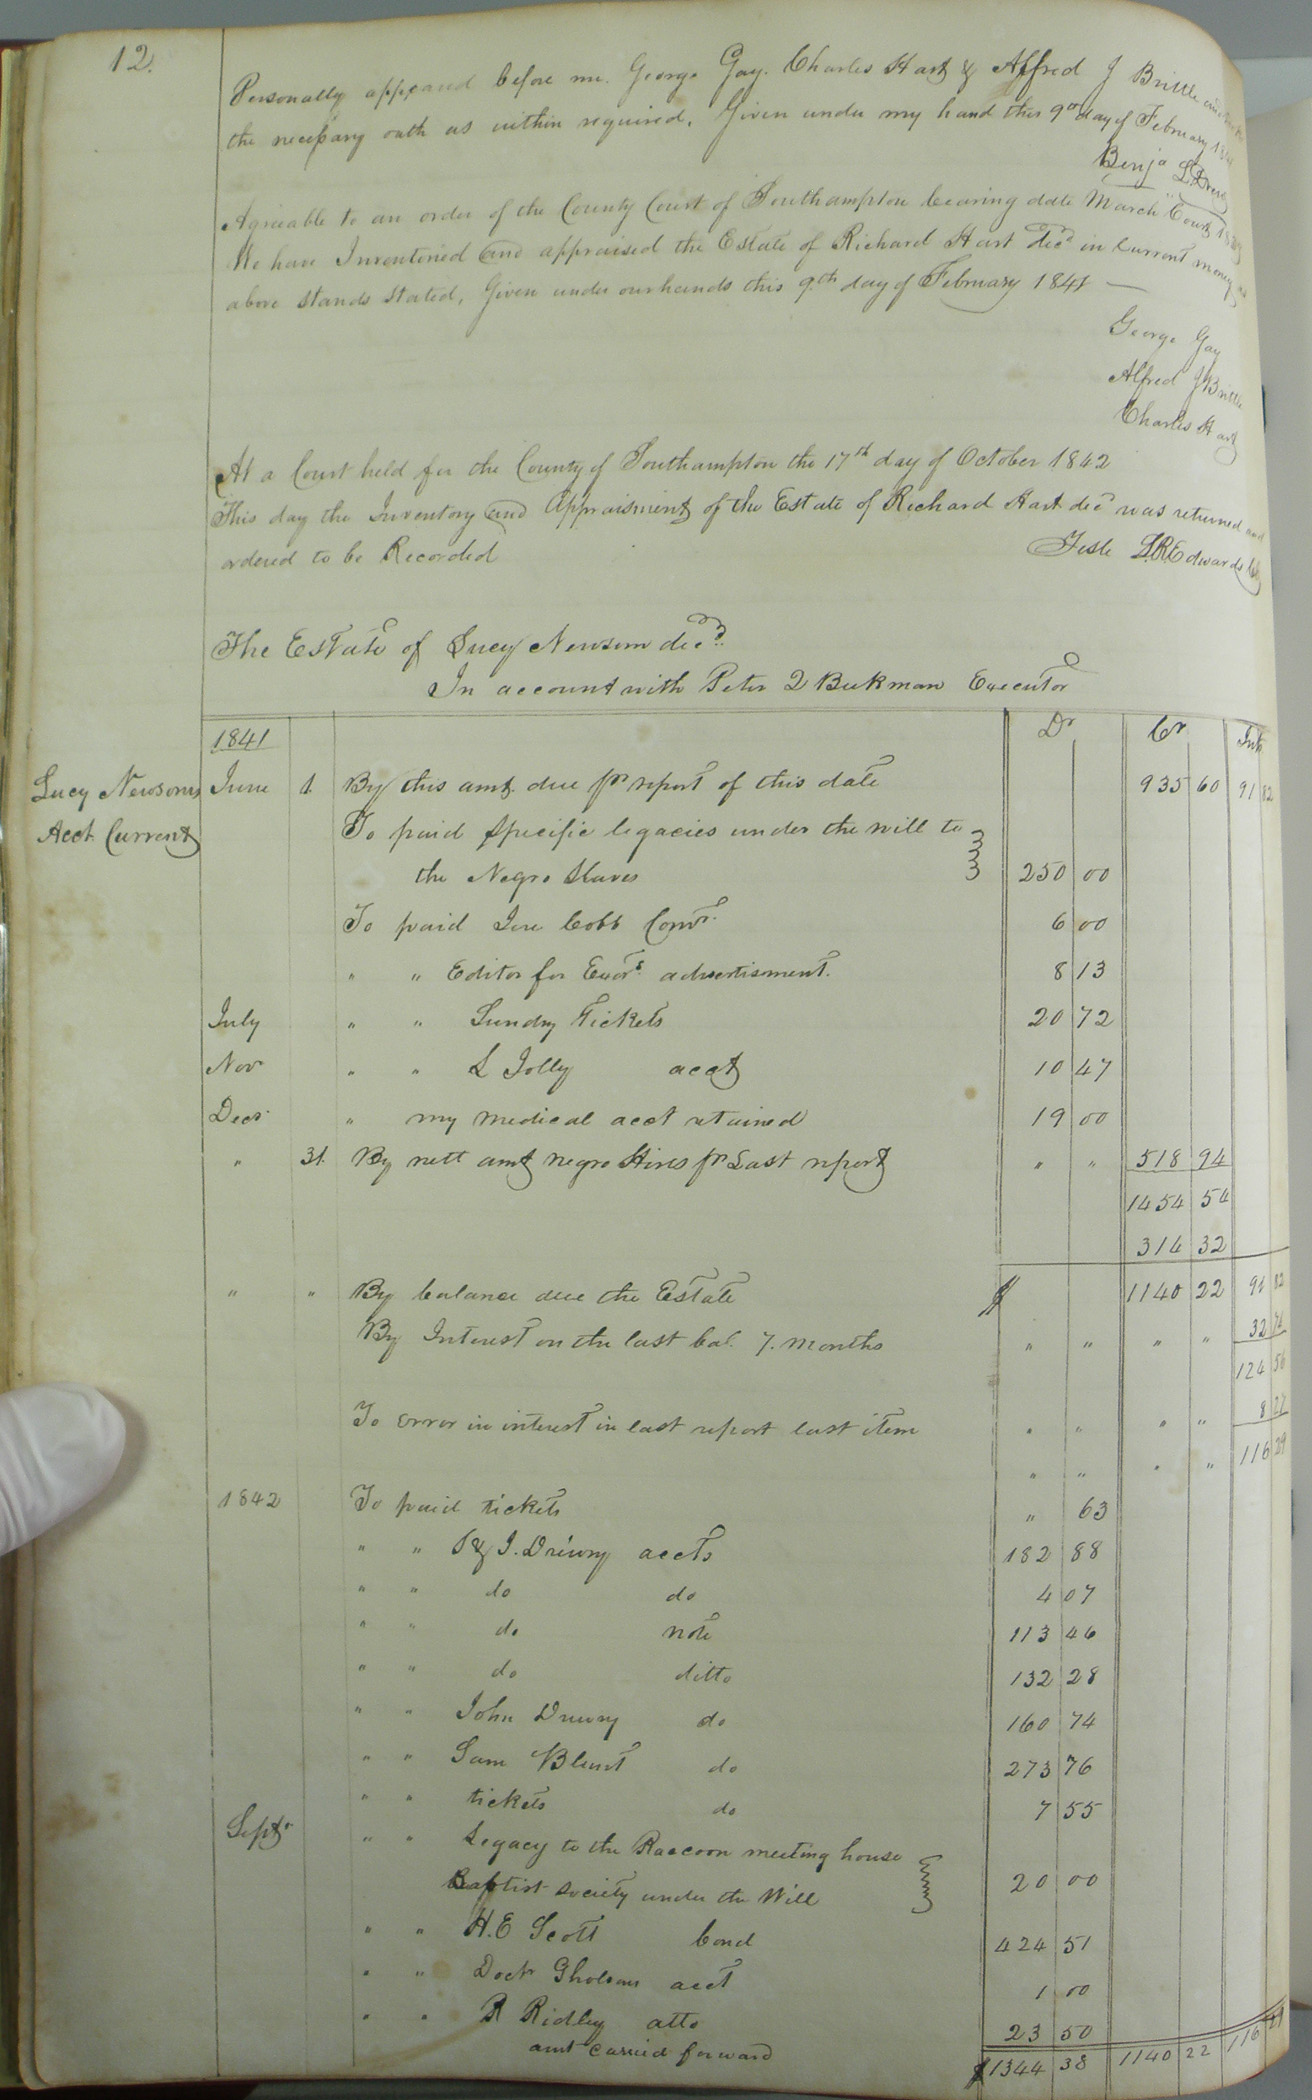 12.
Personally appeared before me. George Gay. Charles Hart & Alfred J Brittle
the necessary oath as within required. Given under my hand this 9th day of February
Benja L. Drew
Agreable to an order of the County Court of Southampton bearing date March Court
We have Inventoried and appraised the Estate of Richard Hart decd in Current money as
above stands stated, Given under our hands this 9th day of February 1841 —
George Gay
Alfred J Brittle
Charles Hart
At a Court held for the County of Southampton the 17th day of October 1842
This day the Inventory and Appraisment of the Estate of Richard Hart decd was returned and
ordered to be Recorded
Teste L.R. Edwards Clk
The Estate of Lucy Newsom decd.
In account with Peter Beekman Executor
1841 Dr Cr Int
Lucy Newsoms June 1. By this amt. due pr report of this date 935 60 91 82
Acct. Current To paid specific legacies under the will to
the Negro Slaves 250 00
To paid Jere Cobb Comr. 6 00
" " Editor for Exors. advertisment. 8 13
July " " Sundry Tickets 20 72
Nov " " L Jolly acct 10 47
Decr. " my medical acct retained 19 00
" 31. By nett amt negro Hires pr Last report " " 518 94
1454 54
314 32
" " By balance due the Estate $ 1140 22 91 82
By Interest on the last bal. 7. months " " " " 32 74
124 56
To error in interest in last report last item " " " " 8 27
" " " " 116 29
1842 To paid tickets " 63
" " & J. Drewry accts 182 88
" " do do 4 07
" " do note 113 46
" " do ditto 132 28
" " John Drewry do 160 74
" " Sam Blunt do 273 76
" " tickets do 7 55
Septr " " Legacy to the Raccoon meeting house
Baptist society under the Will 20 00
" " H.E Scott bond 424 51
" " Doctr Gholsons acct 1 00
" " R Ridley atto 23 50
amt carried forward $1344 38 1140 22 116 29